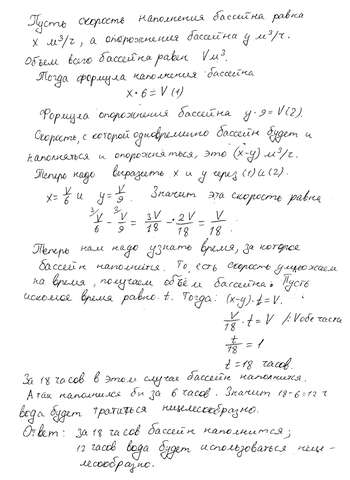 Пусть скорость наполнения бассейна равна
x м³/ч, а опорожнения бассейна y м³/ч.
Объем всего бассейна равен V м³.
Тогда формула наполнения бассейна
x · 6 = V (1)
Формула опорожнения бассейна y · 9 = V (2).
Скорость, с которой одновременно бассейн будет и
наполняться и опорожняться, это (x-y) м³/ч.
Теперь надо выразить x и y через (1) и (2).
x = V/6 и y = V/9. Значит эта скорость равна
V/6 - V/9 = 3V/18 - 2V/18 = V/18.
Теперь нам надо узнать время, за которое
бассейн наполнится. То, есть скорость умножаем
на время, получаем объём бассейна. Пусть
искомое время равно t. Тогда: (x-y) · t = V.
V/18 · t = V /: V обе части
t/18 = 1
t = 18 часов.
За 18 часов в этом случае бассейн наполнился.
А так наполнился бы за 6 часов. Значит 18-6=12 ч
вода будет тратиться нецелесообразно.
Ответ: за 18 часов бассейн наполнится;
12 часов вода будет использоваться неце-
лесообразно.